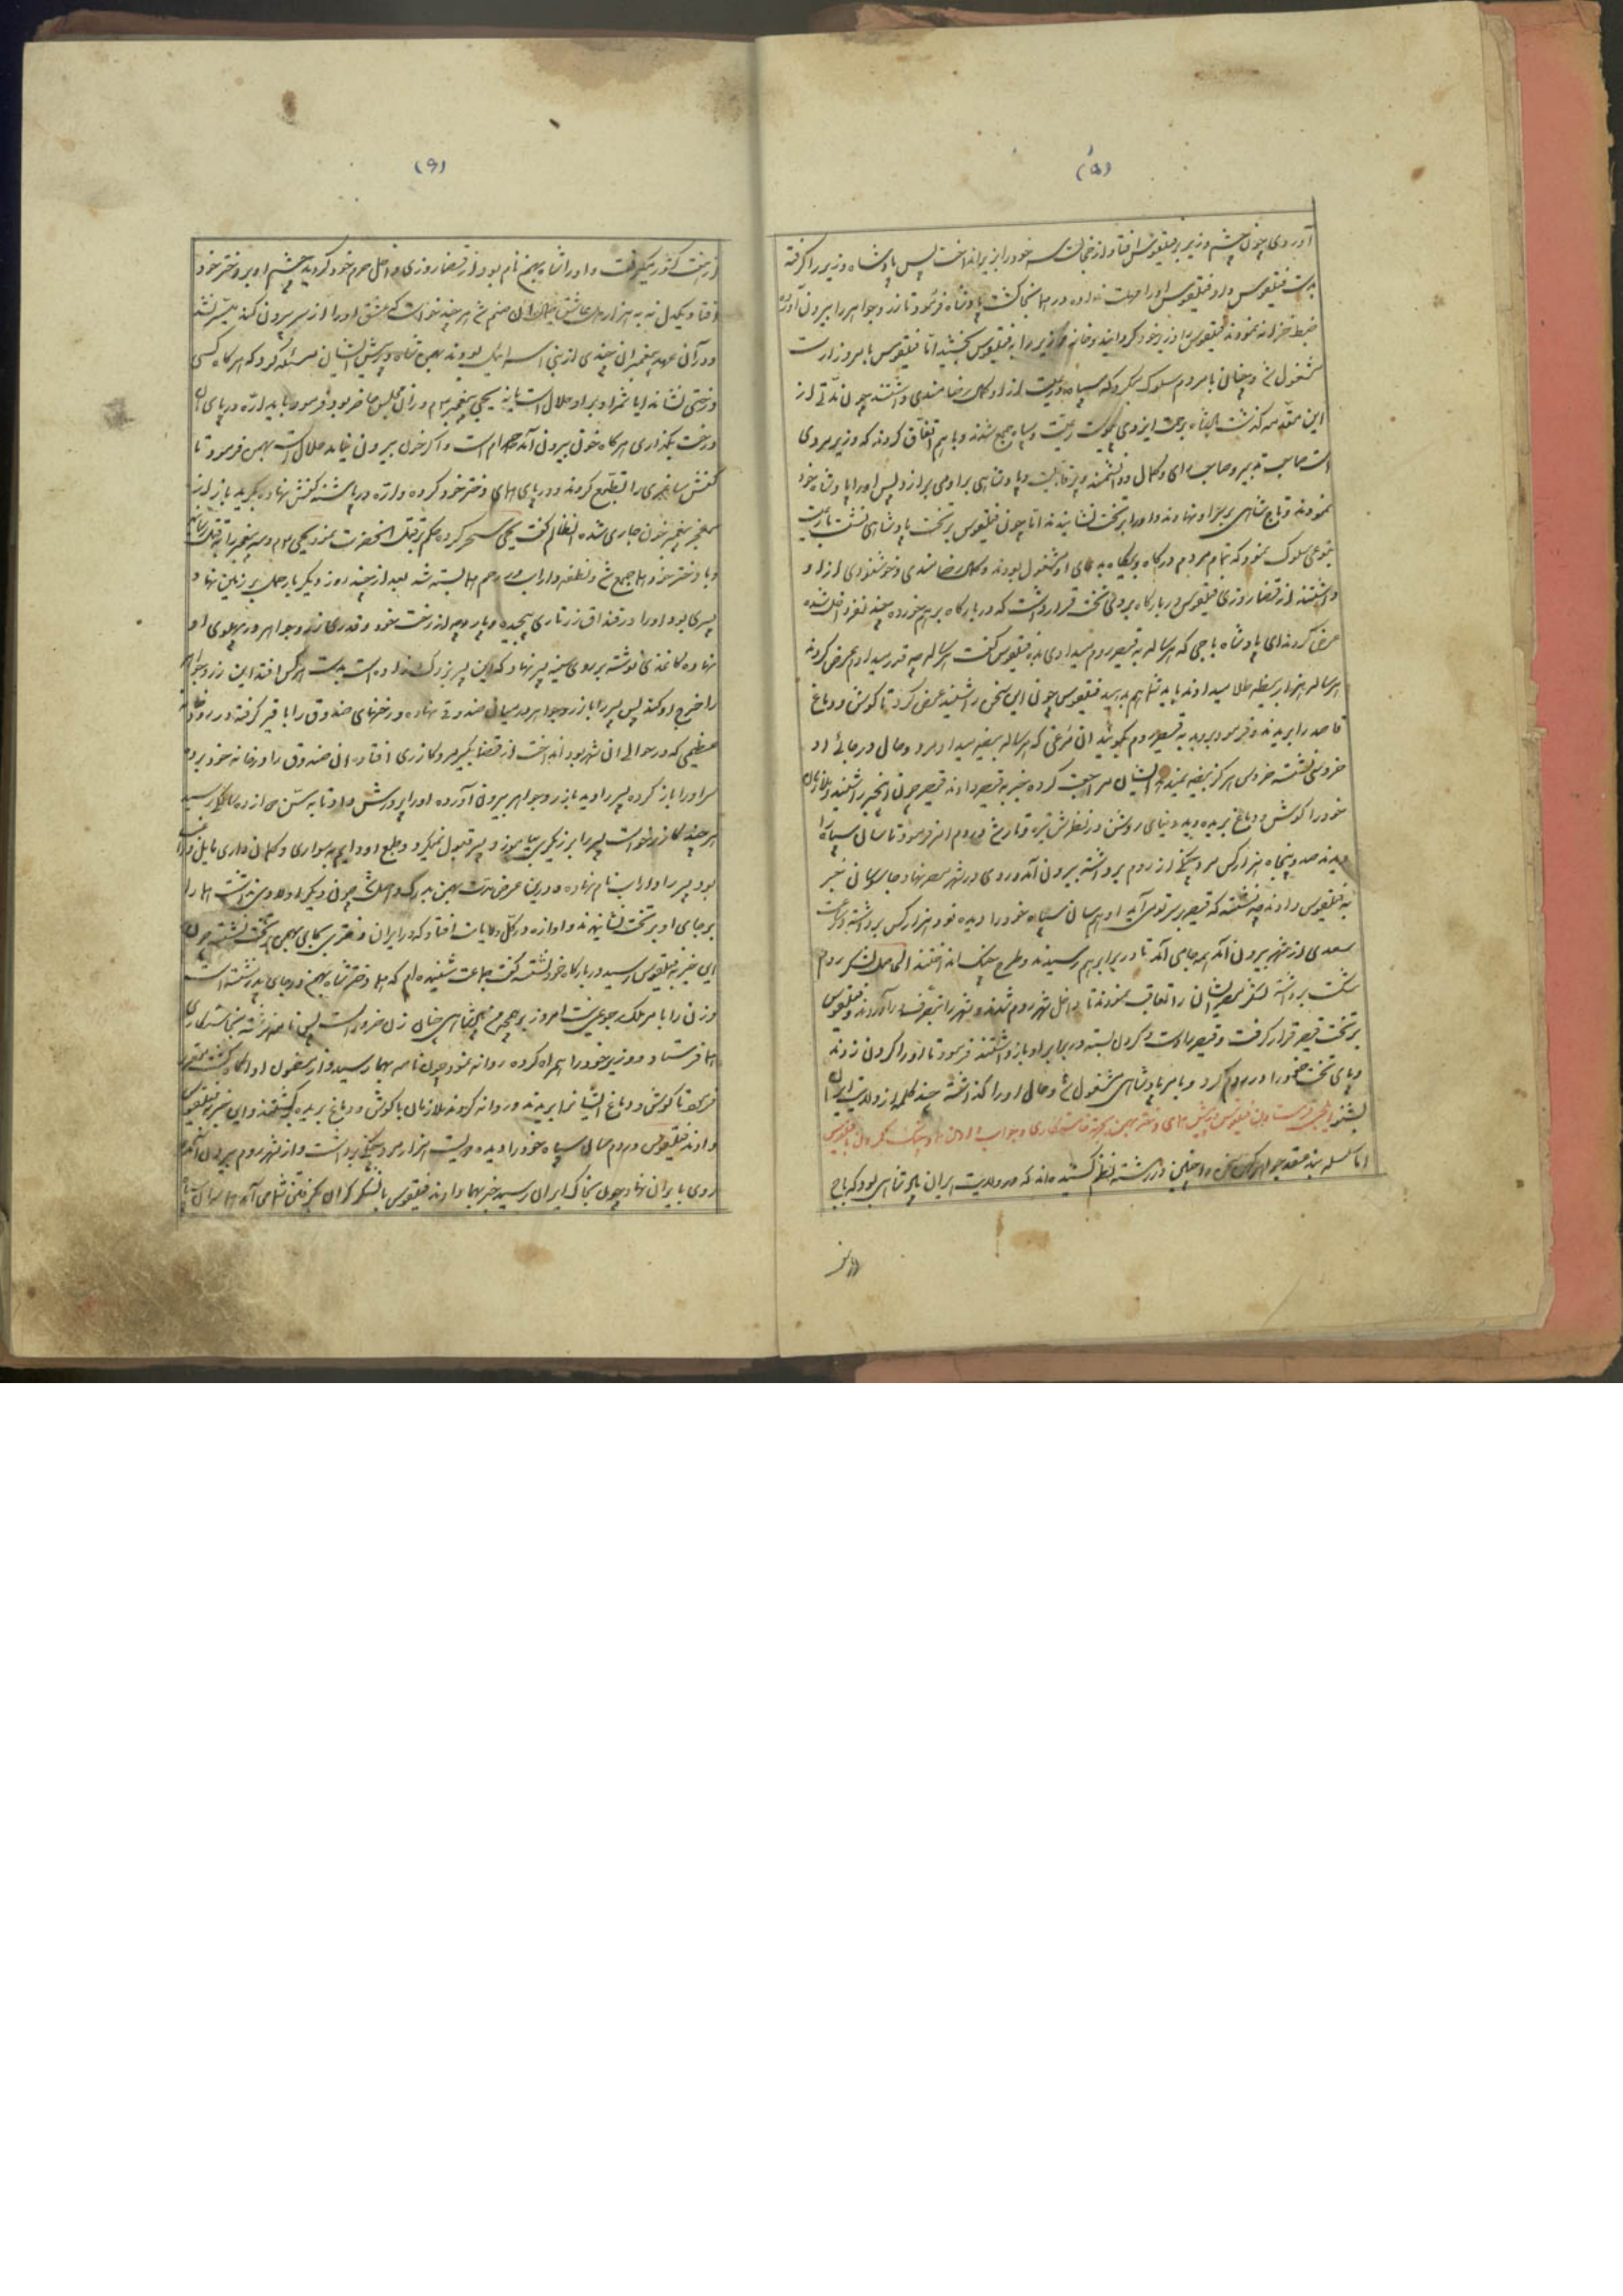 (۵)
آوردی چون چشم وزیر بر فیلقوس افتاد از خجالت سر خود را بزیر انداخت پس پادشاه وزیر را گرفته
بدست فیلقوس داد و فیلقوس او را مهلت نداده در همانجا کشت پادشاه فرمود تا زر و جواهر را بیرون آورده
ضبط خزانه نمودند فیلقوس را وزیر خود گردانید و خانه وزیر را به فیلقوس بخشید اما فیلقوس بامر وزارت
مشغول شد و چنان با مردم سلوک میکرد که سپاه و رعیت از او کمال رضامندی داشتند چون مدتی از
این مقدمه گذشت پادشاه برحمت ایزدی پیوست رعیت و سپاه جمع شدند و با هم اتفاق کردند که وزیر مردی
است صاحب تدبیر و صاحب رای و کمال و دانشمند و پرقابلیت و پادشاهی بر او می برازد پس او را پادشاه خود
نمودند و تاج شاهی بر سر او نهادند و او را بر تخت نشانیدند اما چون فیلقوس بر تخت پادشاهی نشست با رعیت
بنوعی سلوک نمود که تمام مردم درگاه و بیگاه بدعای او مشغول بودند و کمال رضامندی و خوشنودی از او
داشتند از قضا روزی فیلقوس در بارگاه بر روی تخت قرار داشت که در بارگاه بر هم خورده چند نفر داخل شده
عرض کردند ای پادشاه باجی که هر ساله به قیصر روم میدادی بده فیلقوس گفت هر ساله چه قدر میداد عرض کردند
هر ساله هزار بیضه طلا میدادند باید شما هم بدهید فیلقوس چون این سخن را شنید عرض کرد تا گوش و دماغ
قاصد را بریدند و فرمود بروید به قیصر روم بگوئید آن مرغی که هر ساله بیضه میداد مرد و حال در جائی او
خروسی نشسته خروس هرگز بیضه نمیدهد ایشان مراجعت کرده خبر به قیصر دادند قیصر چون آنخبر را شنید و ملازمان
خود را گوش و دماغ بریده دید دنیای روشن در نظرش تیره و تار شد در دم امر فرمود تا سان سپاه را
دیدند صد و پنجاه هزار کس مرد جنگی از روم برداشته بیرون آمد و روی در شهر مصر نهاد جاسوسان خبر
به فیلقوس دادند چه نشسته که قیصر بر سر تو می آید او هم سان سپاه خود را دیده نود هزار کس برداشته در ساعت
سعدی از شهر بیرون آمد همه جا می آمد تا در برابر هم رسیدند و طرح جنگ انداختند الحاصل لشکر روم
شکست برداشته لشکر مصر ایشان را تعاقب نمودند تا داخل شهر روم شدند و شهر را بتصرف درآوردند و فیلقوس
بر تخت قیصر قرار گرفت و قیصر را دست و گردن بسته در برابر او بازداشتند فرمود تا او را گردن زدند
و پای تخت خود را در روم کرد و بامر پادشاهی مشغول شد و حال او را گذاشته چند کلمه از ولایت ایران
بشنو
اما سلسله بند عقد جواهر سخن را چنین در رشته نظم کشیده اند که در ولایت ایران پادشاهی بود که باج
از هفت
(۶)
از هفت کشور میگرفت و او را شاه بهمن نام بود از قضا روزی داخل حرم خود گردید چشم او بر دختر خود
افتاد و یکدل نه به هزار دل عاشق جمال آن صنم شد هر چند خواست که عشق او را از سر بیرون کند میسر نشد
و در آن عهد پیغمبران چندی از بنی اسرائیل بودند بهمن شاه در پیش ایشان مسئله کرد که هر گاه کسی
درختی نشاند آیا ثمر او بر او حلال است یا نه یحیی پیغمبر هم در آن مجلس حاضر بود فرمود باید اره در پای آن
درخت بگذاری هر گاه خون بیرون آمد حرام است و اگر خون بیرون نیاید حلال است بهمن فرمود تا
کفش ساغری را تطبع کردند و در پای همای دختر خود کرده و اره در پاشنه کفش نهاده بکرید باز از
معجز پیغمبر خون جاری شده آن ظالم گفت یحیی سحر کرده حکم بر قتل آنحضرت نمود یحیی و سه پیغمبر را بقتل رسانید
و با دختر خود هما جمع شد و نطفه داراب در رحم هما بسته شد بعد از چند روز دیگر بار حمل بر زمین نهاد
پسری بود او را در قنداق زر تاری پیچیده و پارچه از رخت خود و قدری زر و جواهر در پهلوی او
نهاده کاغذی نوشته بر روی سینه پسر نهاد که این پسر بزرگ زاده است بدست هر کس افتد این زر و جواهر
را خرج او کند پس پسر را با زر و جواهر در میان صندوقی نهاده و رخنهای صندوق را با قیر گرفته در رودخانه
عظیمی که در حوالی آن شهر بود انداخت از قضا بگیر مرد گازری افتاد آن صندوق را در خانه خود برد
سر او را باز کرده پسر را دید با زر و جواهر بیرون آورده او را پرورش داد تا به سن دوازده سالگی رسید
هر چند گازر خواست پسر را بر زیگری بیاموزد پسر قبول نمیکرد و طبع او دایم به سواری و کمان داری مایل و راغب
بود پسر را داراب نام نهاده در این عرض مدت بهمن بدرک واصل شد چون دیگر اولاد نداشت هما را
بر جای او بر تخت نشانیدند و آوازه در کل ولایات افتاد که در ایران دختری بجای بهمن بر تخت نشسته چون
این خبر به فیلقوس رسید در بارگاه خود نشسته گفت جماعت شنیده ام که هما دختر شاه بهمن در جای پدر نشسته است
و زن را با امر ملک رجوعی نیست امروز بر همچو من پادشاهی چنان زن ضرور است پس نامه نوشته بخواستگاری
هما فرستاد و وزیر خود را همراه کرده روانه نمود چون نامه بهما رسید و از مضمون او آگاه گشته
فرمود تا گوش و دماغ ایشانرا بریدند و روانه کردند ملازمان با گوش و دماغ بریده برگشتند و این خبر به فیلقوس
دادند فیلقوس در دم سان سپاه خود را دیده دویست هزار مرد جنگی برداشت و از شهر روم بیرون آمده
روی بایران نهاد چون بخاک ایران رسید خبر بهما دادند فیلقوس با لشکر گران بگرفتن شما می آید هما سان سپاه